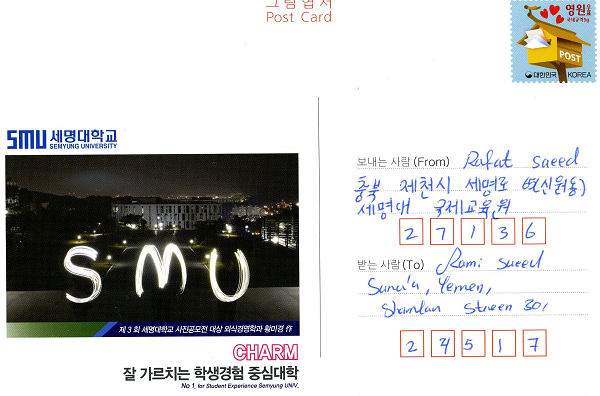 그림엽서
Post Card
영원우표
국내규격용
POST
대한민국 KOREA
SMU 세명대학교
SEMYUNG UNIVERSITY
SMU
제 3 회 세명대학교 사진공모전 대상 외식경영학과 황미경 作
CHARM
잘 가르치는 학생경험 중심대학
No 1, for Student Experience Semyung UNIV.
보내는 사람 (From) Rafat saeed
충북 제천시 세명로 (신월동)
세명대 국제교육원
2 7 1 3 6
받는 사람 (To) Rami saeed
Sana'a, Yemen,
Shamlan Streen 301
2 4 5 1 7